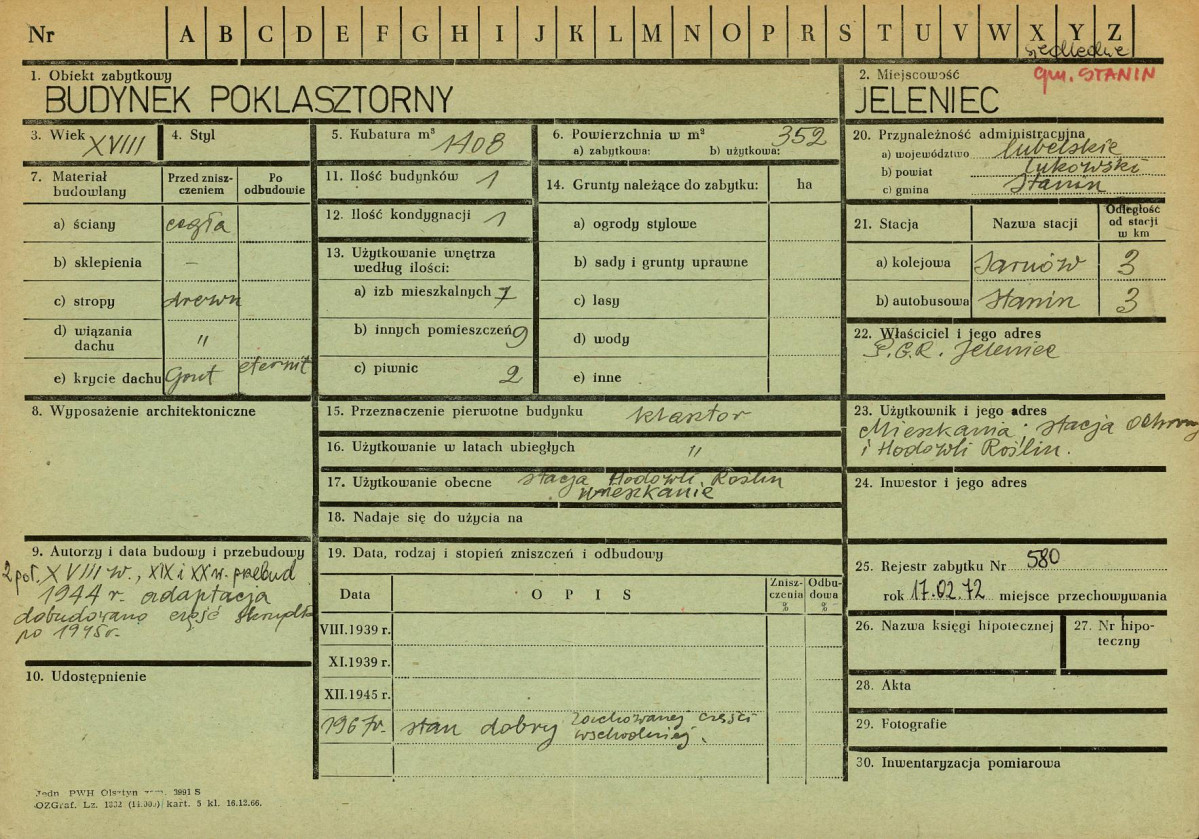 Nr A B C D E F G H I J K L M N O P R S T U V W X Y Z
siedleckie
1. Obiekt zabytkowy
BUDYNEK POKLASZTORNY
2. Miejscowość
gm. STANIN
JELENIEC
3. Wiek XVIII
4. Styl
5. Kubatura m³ 1408
6. Powierzchnia w m² 352
a) zabytkowa: b) użytkowa:
20. Przynależność administracyjna
a) województwo lubelskie
b) powiat łukowski
c) gmina Stanin
7. Materiał budowlany
Przed zniszczeniem
Po odbudowie
a) ściany cegła
b) sklepienia —
c) stropy drewn
d) wiązania dachu "
e) krycie dachu Gont eternit
11. Ilość budynków 1
12. Ilość kondygnacji 1
13. Użytkowanie wnętrza
według ilości:
a) izb mieszkalnych 7
b) innych pomieszczeń 9
c) piwnic 2
14. Grunty należące do zabytku: ha
a) ogrody stylowe
b) sady i grunty uprawne
c) lasy
d) wody
e) inne
21. Stacja
Nazwa stacji
Odległość
od stacji
w km
a) kolejowa Sarnów 3
b) autobusowa Stanin 3
22. Właściciel i jego adres
P.G.R. Jeleniec
8. Wyposażenie architektoniczne
15. Przeznaczenie pierwotne budynku klasztor
16. Użytkowanie w latach ubiegłych "
17. Użytkowanie obecne stacja Hodowli Roślin
mieszkanie
18. Nadaje się do użycia na
23. Użytkownik i jego adres
Mieszkania. stacja Ochrony
i Hodowli Roślin.
24. Inwestor i jego adres
9. Autorzy i data budowy i przebudowy
2 poł. XVIII w., XIX i XX w. przebud
1944 r. adaptacja
dobudowano część skrzydła
po 1945r.
10. Udostępnienie
19. Data, rodzaj i stopień zniszczeń i odbudowy
Data
O P I S
Zniszczenia %
Odbudowa %
VIII.1939 r.
XI.1939 r.
XII.1945 r.
1967r. stan dobry zachowanej części
wschodniej.
25. Rejestr zabytku Nr 580
rok 17.02.72 miejsce przechowywania
26. Nazwa księgi hipotecznej
27. Nr hipoteczny
28. Akta
29. Fotografie
30. Inwentaryzacja pomiarowa
Jedn. PWH Olsztyn zam. 3991 S
OZGraf. Lz. 1332 (14.000) kart. 5 kl. 16.12.66.